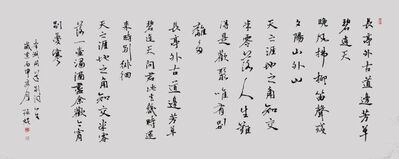 長亭外古道邊芳草
碧連天
晚風拂柳笛聲殘
夕陽山外山
天之涯地之角知交
半零落人生難
得是歡聚唯有別
離多
長亭外古道邊芳草
碧連天問君此去幾時還
來時別徘徊
天之涯地之角知交半零
落一壺濁酒盡餘歡今宵
別夢寒
李叔同送別
歲在丙申